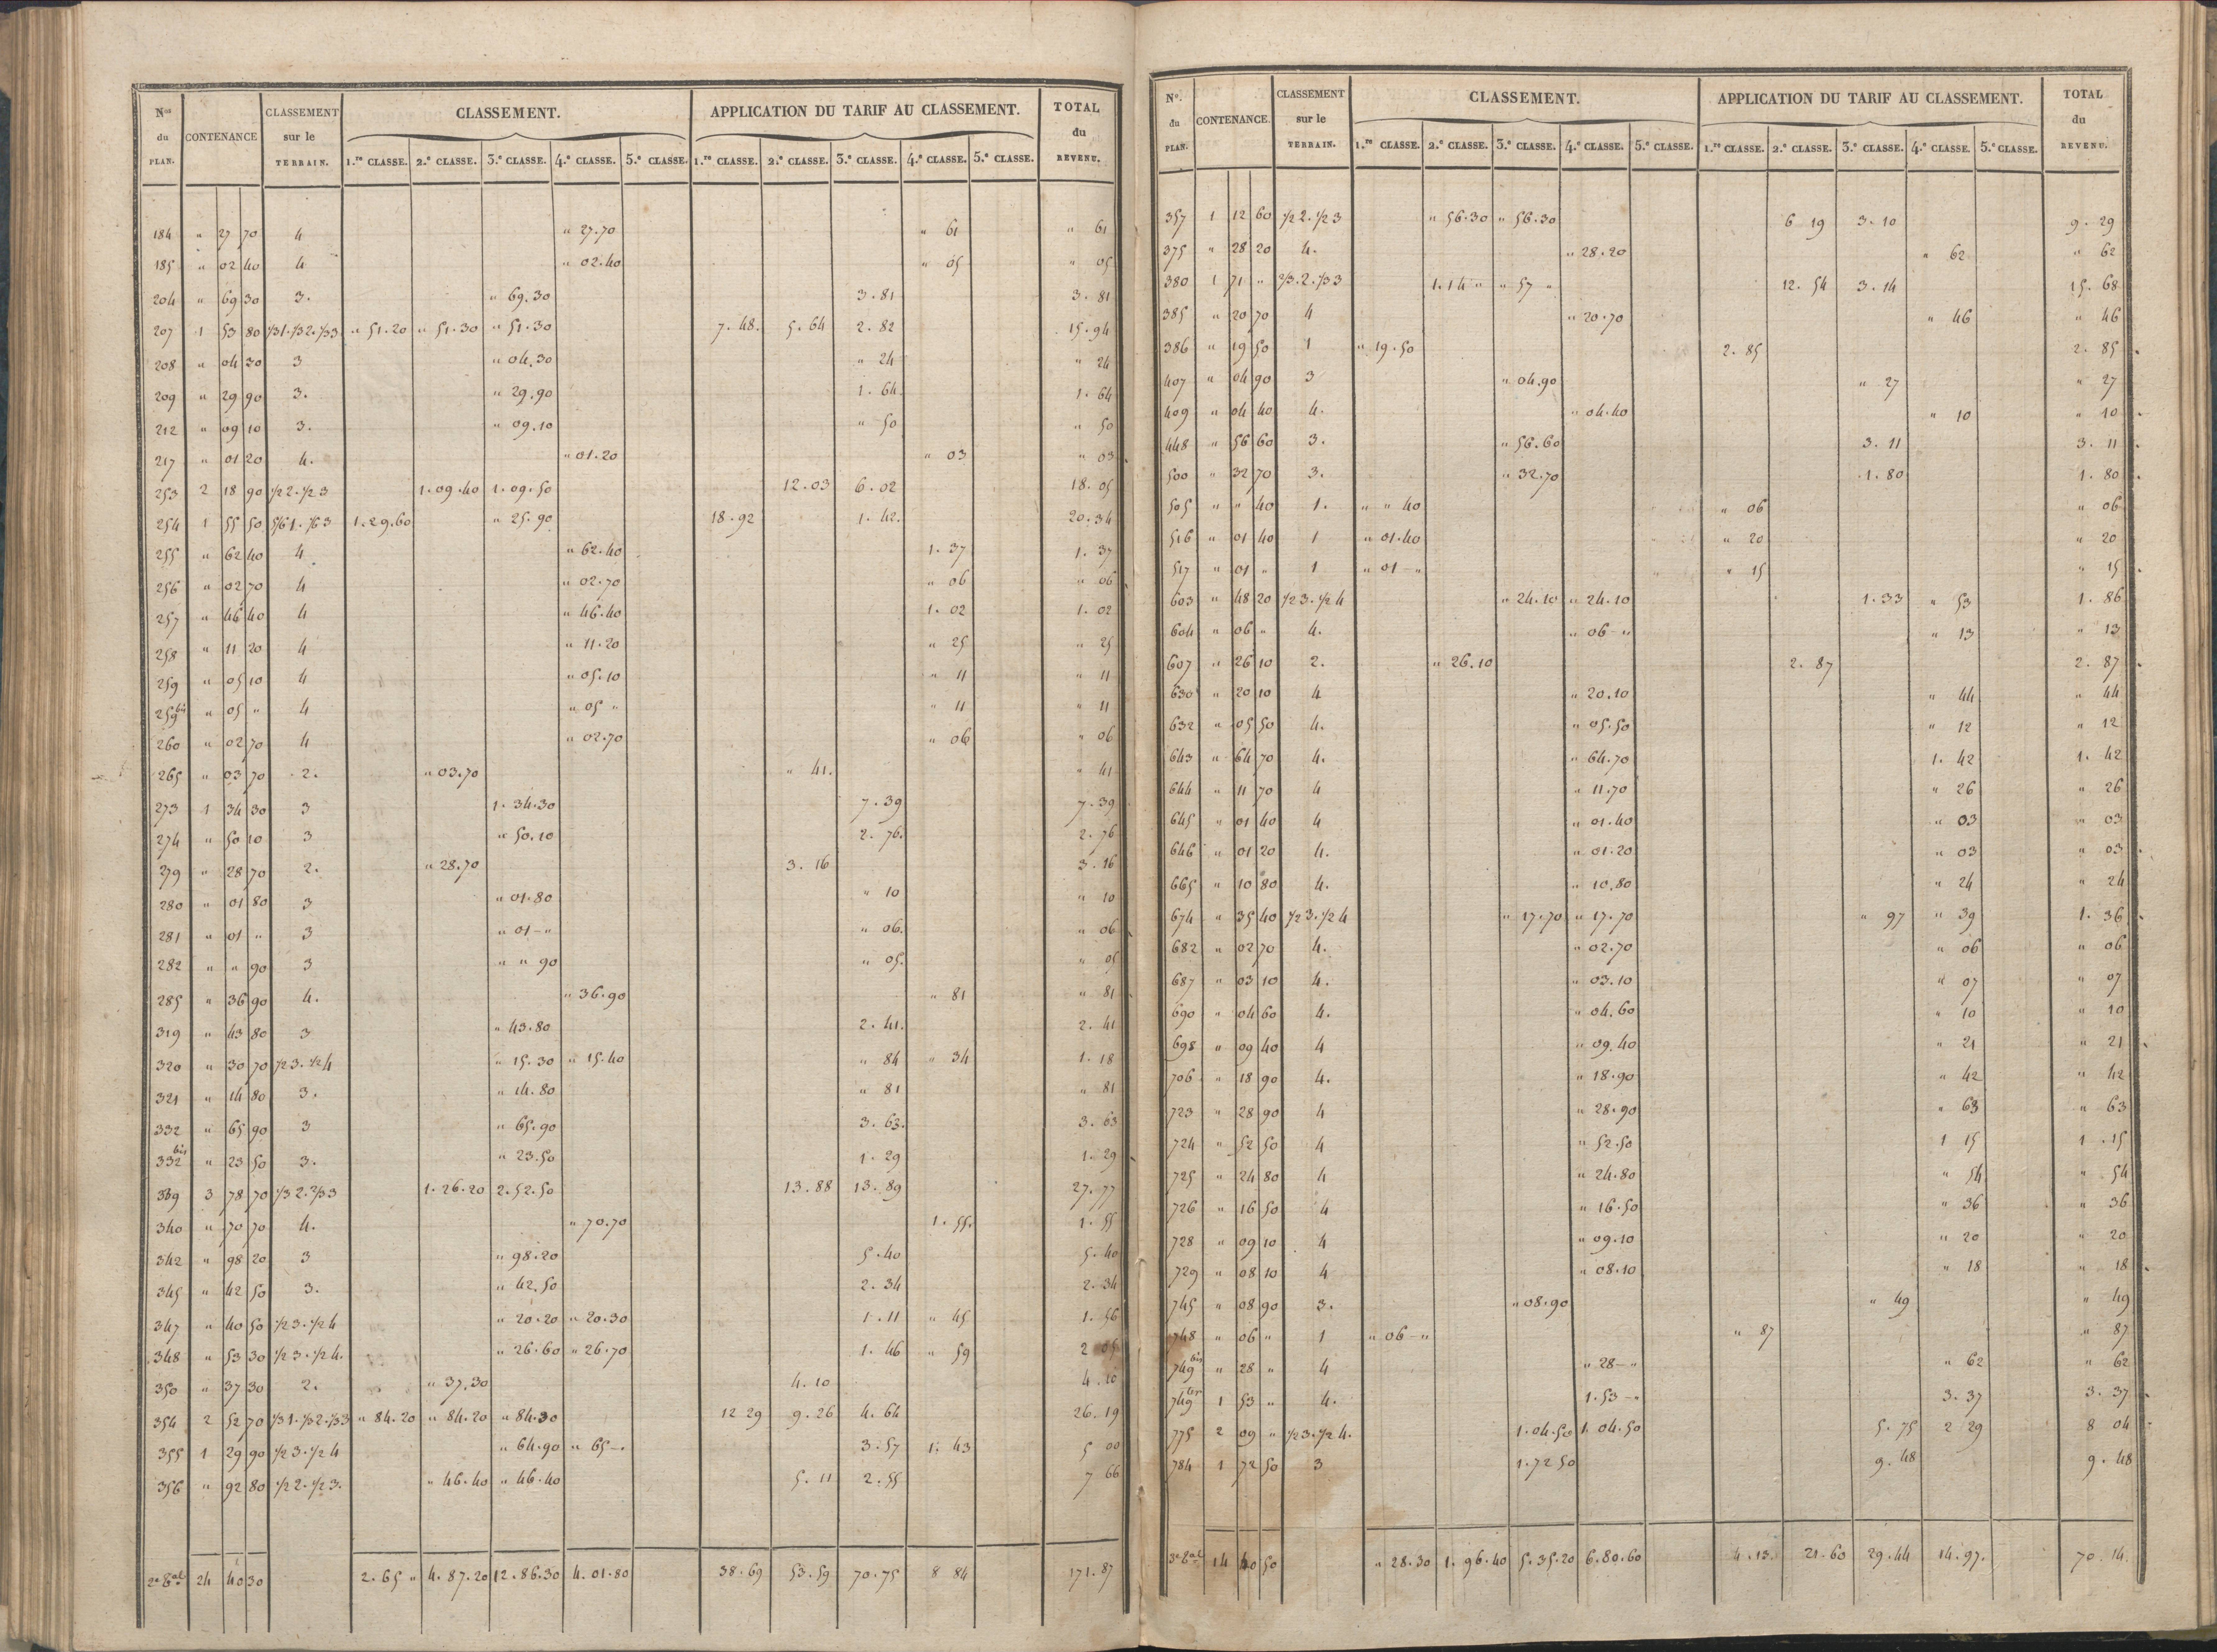 Nos du PLAN. CONTENANCE CLASSEMENT sur le TERRAIN. CLASSEMENT. APPLICATION DU TARIF AU CLASSEMENT. TOTAL du REVENU.
1.re CLASSE. 2.e CLASSE. 3.e CLASSE. 4.e CLASSE. 5.e CLASSE. 1.re CLASSE. 2.e CLASSE. 3.e CLASSE. 4.e CLASSE. 5.e CLASSE.
184 " 27 70 4 " 27.70 " 61 " 61
185 " 02 40 4 " 02.40 " 05 " 05
204 " 69 30 3. " 69.30 3.81 3.81
207 1 53 80 1/3 1. 1/3 2. 1/3 3 " 51.20 " 51.30 " 51.30 7.48. 5.64 2.82 15.94
208 " 04 30 3 " 04.30 " 24 " 24
209 " 29 90 3. " 29.90 1.64. 1.64
212 " 09 10 3. " 09.10 " 50 " 50
217 " 01 20 4. " 01.20 " 03 " 03
253 2 18 90 1/2 2. 1/2 3 1.09.40 1.09.50 12.03 6.02 18.05
254 1 55 50 5/6 1. 1/6 3 1.29.60 " 25.90 18.92 1.42. 20.34
255 " 62 40 4 " 62.40 1.37 1.37
256 " 02 70 4 " 02.70 " 06 " 06
257 " 46 40 4 " 46.40 1.02 1.02
258 " 11 20 4 " 11.20 " 25 " 25
259 " 05 10 4 " 05.10 " 11 " 11
259 bis " 05 " 4 " 05 " " 11 " 11
260 " 02 70 4 " 02.70 " 06 " 06
265 " 03 70 2. " 03.70 " 41. " 41
273 1 34 30 3 1.34.30 7.39 7.39
274 " 50 10 3 " 50.10 2.76. 2.76
279 " 28 70 2. " 28.70 3.16 3.16
280 " 01 80 3 " 01.80 " 10 " 10
281 " 01 " 3 " 01-" " 06. " 06
282 " " 90 3 " " 90 " 05. " 05
285 " 36 90 4. " 36.90 " 81 " 81
319 " 43 80 3 " 43.80 2.41. 2.41
320 " 30 70 1/2 3. 1/2 4 " 15.30 " 15.40 " 84 " 34 1.18
321 " 14 80 3. " 14.80 " 81 " 81
332 " 65 90 3 " 65.90 3.63. 3.63
332 bis " 23 50 3. " 23.50 1.29 1.29
339 3 78 70 1/3 2. 2/3 3 1.26.20 2.52.50 13.88 13.89 27.77
340 " 70 70 4. " 70.70 1.55. 1.55
342 " 98 20 3 " 98.20 5.40 5.40
345 " 42 50 3. " 42.50 2.34 2.34
347 " 40 50 1/2 3. 1/2 4 " 20.20 " 20.30 1.11 " 45 1.56
348 " 53 30 1/2 3. 1/2 4. " 26.60 " 26.70 1.46 " 59 2 05
350 " 37 30 2. " 37.30 4.10 4.10
354 2 52 70 1/3 1. 1/3 2. 1/3 3 " 84.20 " 84.20 " 84.30 12 29 9.26 4.64 26.19
355 1 29 90 1/2 3. 1/2 4 " 64.90 " 65-. 3.57 1.43 5 00
356 " 92 80 1/2 2. 1/2 3. " 46.40 " 46.40 5.11 2.55 7 66
2e Tal 24 40 30 2.65 " 4.87.20 12.86.30 4.01.80 38.69 53.59 70.75 8 84 171.87
No. du PLAN. CONTENANCE. CLASSEMENT sur le TERRAIN. CLASSEMENT. APPLICATION DU TARIF AU CLASSEMENT. TOTAL du REVENU.
1.re CLASSE. 2.e CLASSE. 3.e CLASSE. 4.e CLASSE. 5.e CLASSE. 1.re CLASSE. 2.e CLASSE. 3.e CLASSE. 4.e CLASSE. 5.e CLASSE.
357 1 12 60 1/2 2. 1/2 3 " 56.30 " 56.30 6 19 3.10 9.29
375 " 28 20 4. " 28.20 " 62 " 62
380 1 71 " 2/3 2. 1/3 3 1.14 " " 57 " 12.54 3.14 15.68
385 " 20 70 4 " 20.70 " 46 " 46
386 " 19 50 1 " 19.50 2.85 2.85
407 " 04 90 3 " 04.90 " 27 " 27
409 " 04 40 4. " 04.40 " 10 " 10
448 " 56 60 3. " 56.60 3.11 3.11
500 " 32 70 3. " 32.70 1.80 1.80
505 " " 40 1. " " 40 " 06 " 06
516 " 01 40 1 " 01.40 " 20 " 20
517 " 01 " 1 " 01-" " 15 " 15
603 " 48 20 1/2 3. 1/2 4 " 24.10 " 24.10 1.33 " 53 1.86
604 " 06 " 4. " 06-" " 13 " 13
607 " 26 10 2. " 26.10 2.87 2.87
630 " 20 10 4 " 20.10 " 44 " 44
632 " 05 50 4. " 05.50 " 12 " 12
643 " 64 70 4. " 64.70 1.42 1.42
644 " 11 70 4 " 11.70 " 26 " 26
645 " 01 40 4 " 01.40 " 03 " 03
646 " 01 20 4. " 01.20 " 03 " 03
665 " 10 80 4. " 10.80 " 24 " 24
674 " 35 40 1/2 3. 1/2 4 " 17.70 " 17.70 " 97 " 39 1.36
682 " 02 70 4. " 02.70 " 06 " 06
687 " 03 10 4. " 03.10 " 07 " 07
690 " 04 60 4. " 04.60 " 10 " 10
698 " 09 40 4 " 09.40 " 21 " 21
706 " 18 90 4. " 18.90 " 42 " 42
723 " 28 90 4 " 28.90 " 63 " 63
724 " 52 50 4 " 52.50 1 15 1.15
725 " 24 80 4 " 24.80 " 54 " 54
726 " 16 50 4 " 16.50 " 36 " 36
728 " 09 10 4 " 09.10 " 20 " 20
729 " 08 10 4 " 08.10 " 18 " 18
745 " 08 90 3. " 08.90 " 49 " 49
748 " 06 " 1 " 06-" " 87 " 87
749 bis " 28 " 4 " 28-" " 62 " 62
749 ter 1 53 " 4. 1.53-" 3.37 3.37
775 2 09 " 1/2 3. 1/2 4. 1.04.50 1.04.50 5.75 2 29 8 04
784 1 72 50 3 1.72 50 9.48 9.48
3e Tal 14 40 50 " 28.30 1.96.40 5.35.20 6.80.60 4.13. 21.60 29.44 14.97. 70.14.